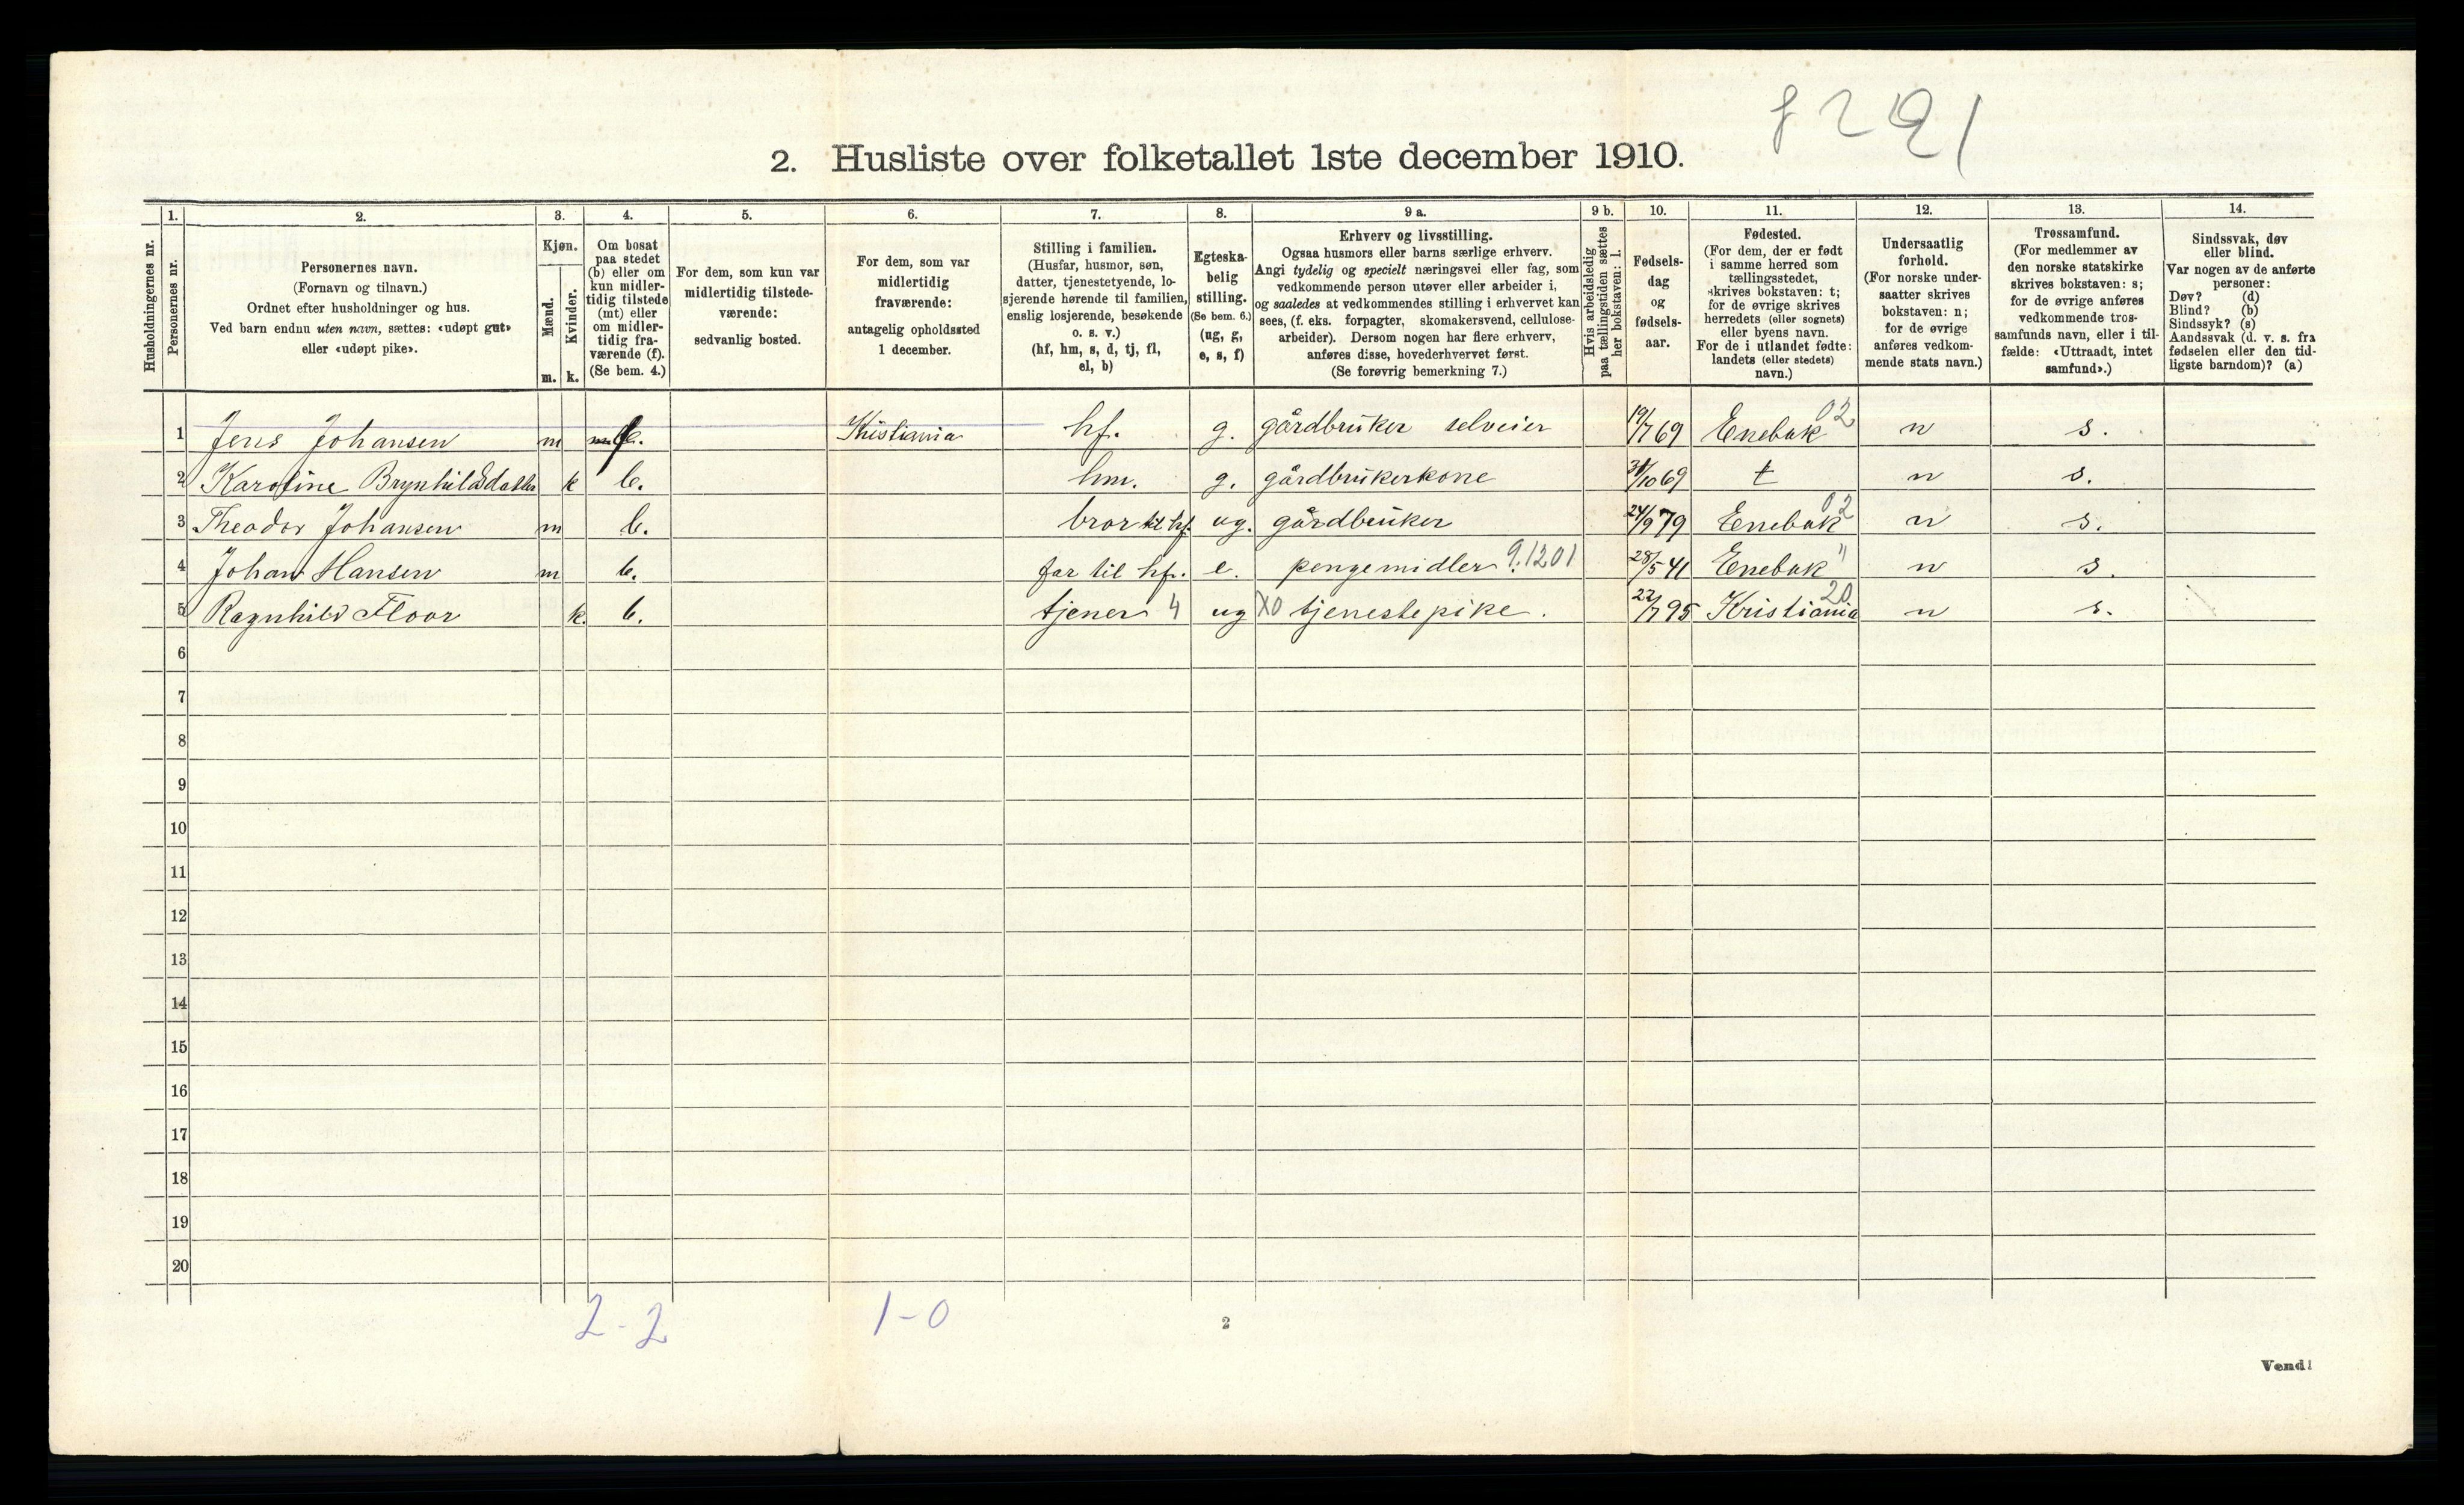 f 2 Q 1
2. Husliste over folketallet 1ste december 1910.
Husholdningernes nr.
1.
Personernes nr.
2.
Personernes navn.
(Fornavn og tilnavn.)
Ordnet efter husholdninger og hus.
Ved barn endnu uten navn, sættes: «udøpt gut»
eller «udøpt pike».
3.
Kjøn.
Mænd.
Kvinder.
m. k.
4.
Om bosat
paa stedet
(b) eller om
kun midler-
tidig tilstede
(mt) eller
om midler-
tidig fra-
værende (f).
(Se bem. 4.)
5.
For dem, som kun var
midlertidig tilstede-
værende:
sedvanlig bosted.
6.
For dem, som var
midlertidig
fraværende:
antagelig opholdssted
1 december.
7.
Stilling i familien.
(Husfar, husmor, søn,
datter, tjenestetyende, lo-
sjerende hørende til familien,
enslig losjerende, besøkende
o. s. v.)
(hf, hm, s, d, tj, fl,
el, b)
8.
Egteska-
belig
stilling.
(Se bem. 6.)
(ug, g,
e, s, f)
9 a.
Erhverv og livsstilling.
Ogsaa husmors eller barns særlige erhverv.
Angi tydelig og specielt næringsvei eller fag, som
vedkommende person utøver eller arbeider i,
og saaledes at vedkommendes stilling i erhvervet kan
sees, (f. eks. forpagter, skomakersvend, cellulose-
arbeider). Dersom nogen har flere erhverv,
anføres disse, hovederhvervet først.
(Se forøvrig bemerkning 7.)
9 b.
Hvis arbeidsledig
paa tællingstiden sættes
her bokstaven: l.
10.
Fødsels-
dag
og
fødsels-
aar.
11.
Fødested.
(For dem, der er født
i samme herred som
tællingsstedet,
skrives bokstaven: t;
for de øvrige skrives
herredets (eller sognets)
eller byens navn.
For de i utlandet fødte:
landets (eller stedets)
navn.)
12.
Undersaatlig
forhold.
(For norske under-
saatter skrives
bokstaven: n;
for de øvrige
anføres vedkom-
mende stats navn.)
13.
Trossamfund.
(For medlemmer av
den norske statskirke
skrives bokstaven: s;
for de øvrige anføres
vedkommende tros-
samfunds navn, eller i til-
fælde: «Uttraadt, intet
samfund».)
14.
Sindssvak, døv
eller blind.
Var nogen av de anførte
personer:
Døv? (d)
Blind? (b)
Sindssyk? (s)
Aandssvak (d. v. s. fra
fødselen eller den tid-
ligste barndom)? (a)
1 Jens Johansen m f. Kristiania hf. g. gårdbruker selveier 19/7 69 Enebak 02 n s.
2 Karoline Brynhildsdatter k b. hm. g. gårdbrukerkone 31/10 69 t n s.
3 Theodor Johansen m b. bror til hf. ug. gårdbruker 24/9 79 Enebak 02 n s.
4 Johan Hansen m b. far til hf. e. pengemidler 9.1201 28/5 41 Enebak " n s.
5 Ragnhild Floor k. b. tjener 4 ug X0 tjenestepike. 22/7 95 Kristiania 20 n s.
6
7
8
9
10
11
12
13
14
15
16
17
18
19
20
2-2 1-0
2
Vend!